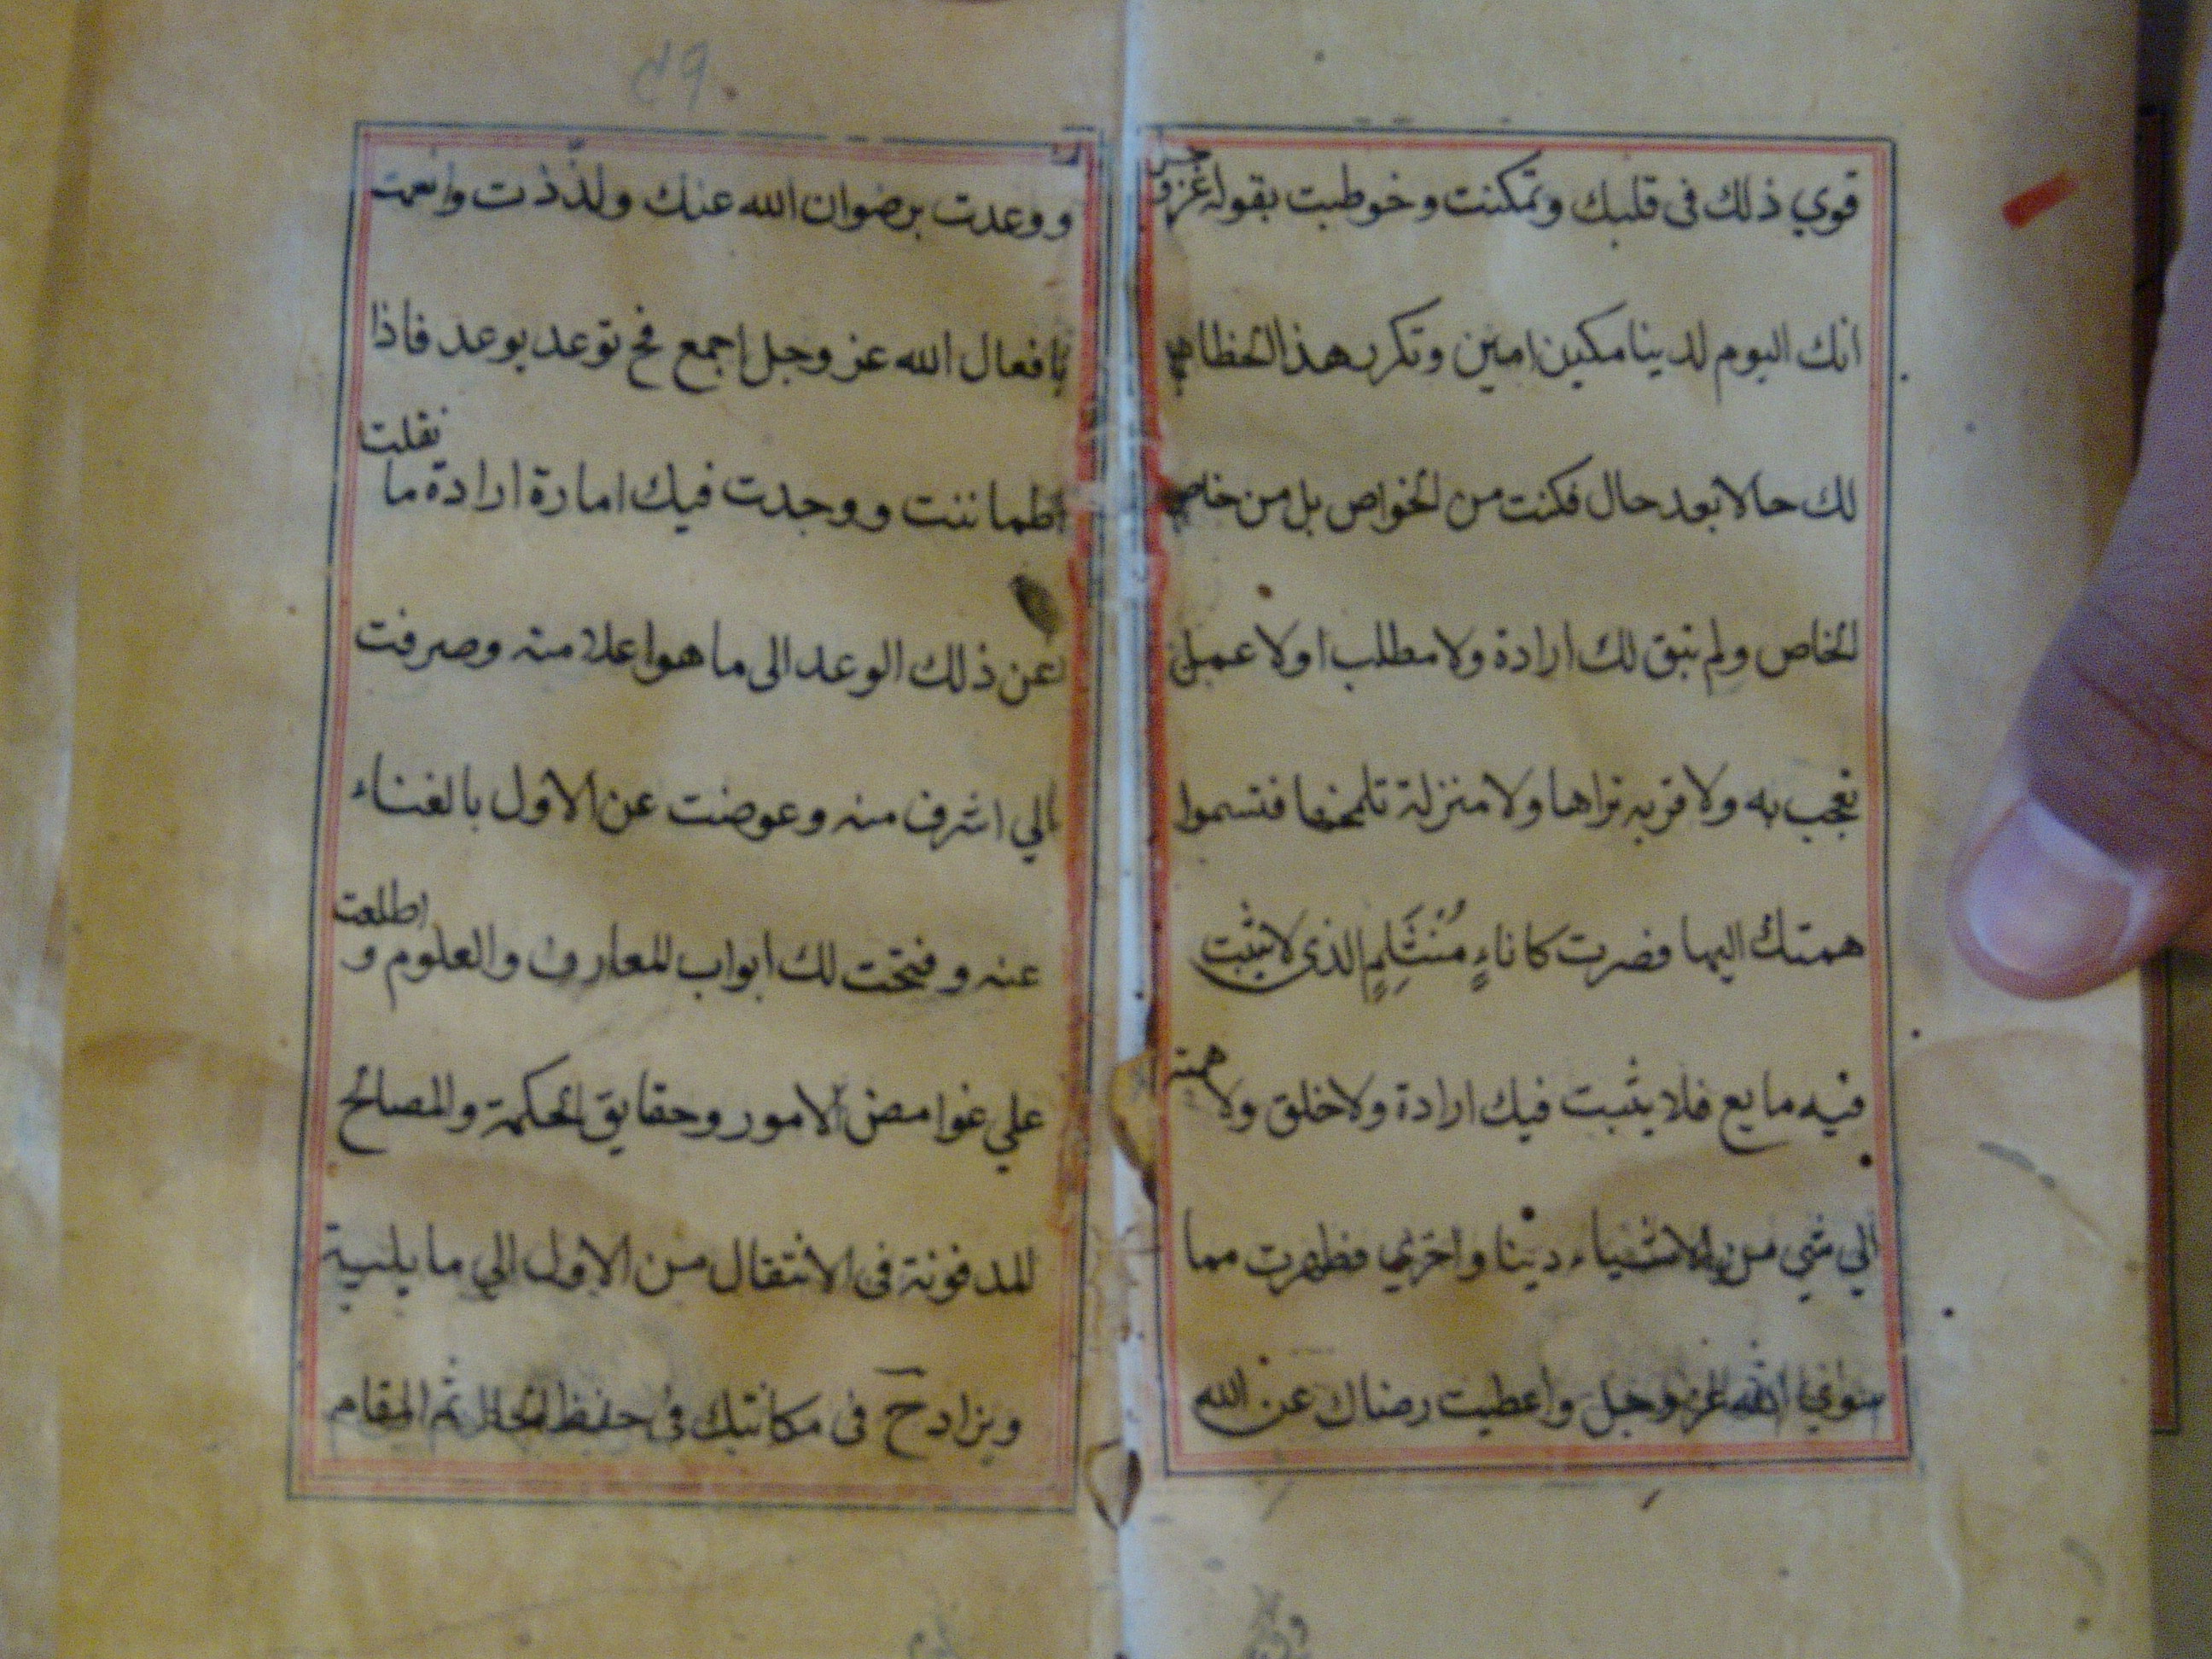 قوي ذلك فى قلبك وتمكنت وخوطبت بقوله عزوجل
انك اليوم لدينا مكين امين وتكرر هذا الخطاب
لك حالا بعد حال فكنت من الخواص بل من خاص
الخاص ولم تبق لك ارادة ولا مطلب اولا عمل
تعجب به ولا قربه تراها ولا منزلة تلمحها فتسموا
همتك اليها فصرت كاناءٍ مُنْثَلِمٍ الذي لا يثبت
فيه مايع فلا يثبت فيك ارادة ولا خلق ولا همة
الي شي من الاشياء دينا واخري فظهرت مما
سوي الله عزوجل واعطيت رضاك عن الله
٤٩
ووعدت برضوان الله عنك ولذذت وانعمت
بافعال الله عز وجل اجمع فح توعد بوعد فاذا
اطماننت ووجدت فيك امارة ارادة ما نقلت
عن ذلك الوعد الى ما هو اعلا منه وصرفت
الي اشرف منه وعوضت عن الاول بالغناء
عنه وفتحت لك ابواب المعارف والعلوم و اطلعت
علي غوامض الامور وحقايق الحكمة والمصالح
المدفونة فى الانتقال من الاول الي ما يليه
ويزاد ح فى مكانتك فى حفظ الحال ثم المقام